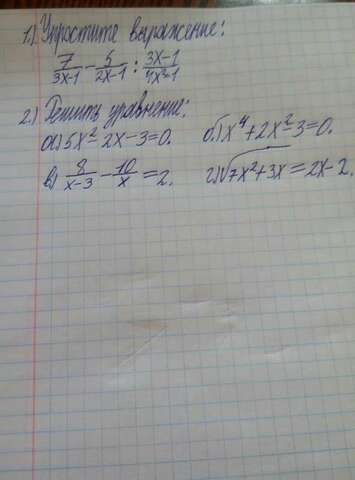 1.) Упростите выражение:
7/(3x-1) - 5/(2x-1) : (3x-1)/(4x²-1)
2.) Решить уравнение:
а) 5x² - 2x - 3 = 0. б) x⁴ + 2x² - 3 = 0.
в) 8/(x-3) - 10/x = 2. г) √(7x²+3x) = 2x - 2.